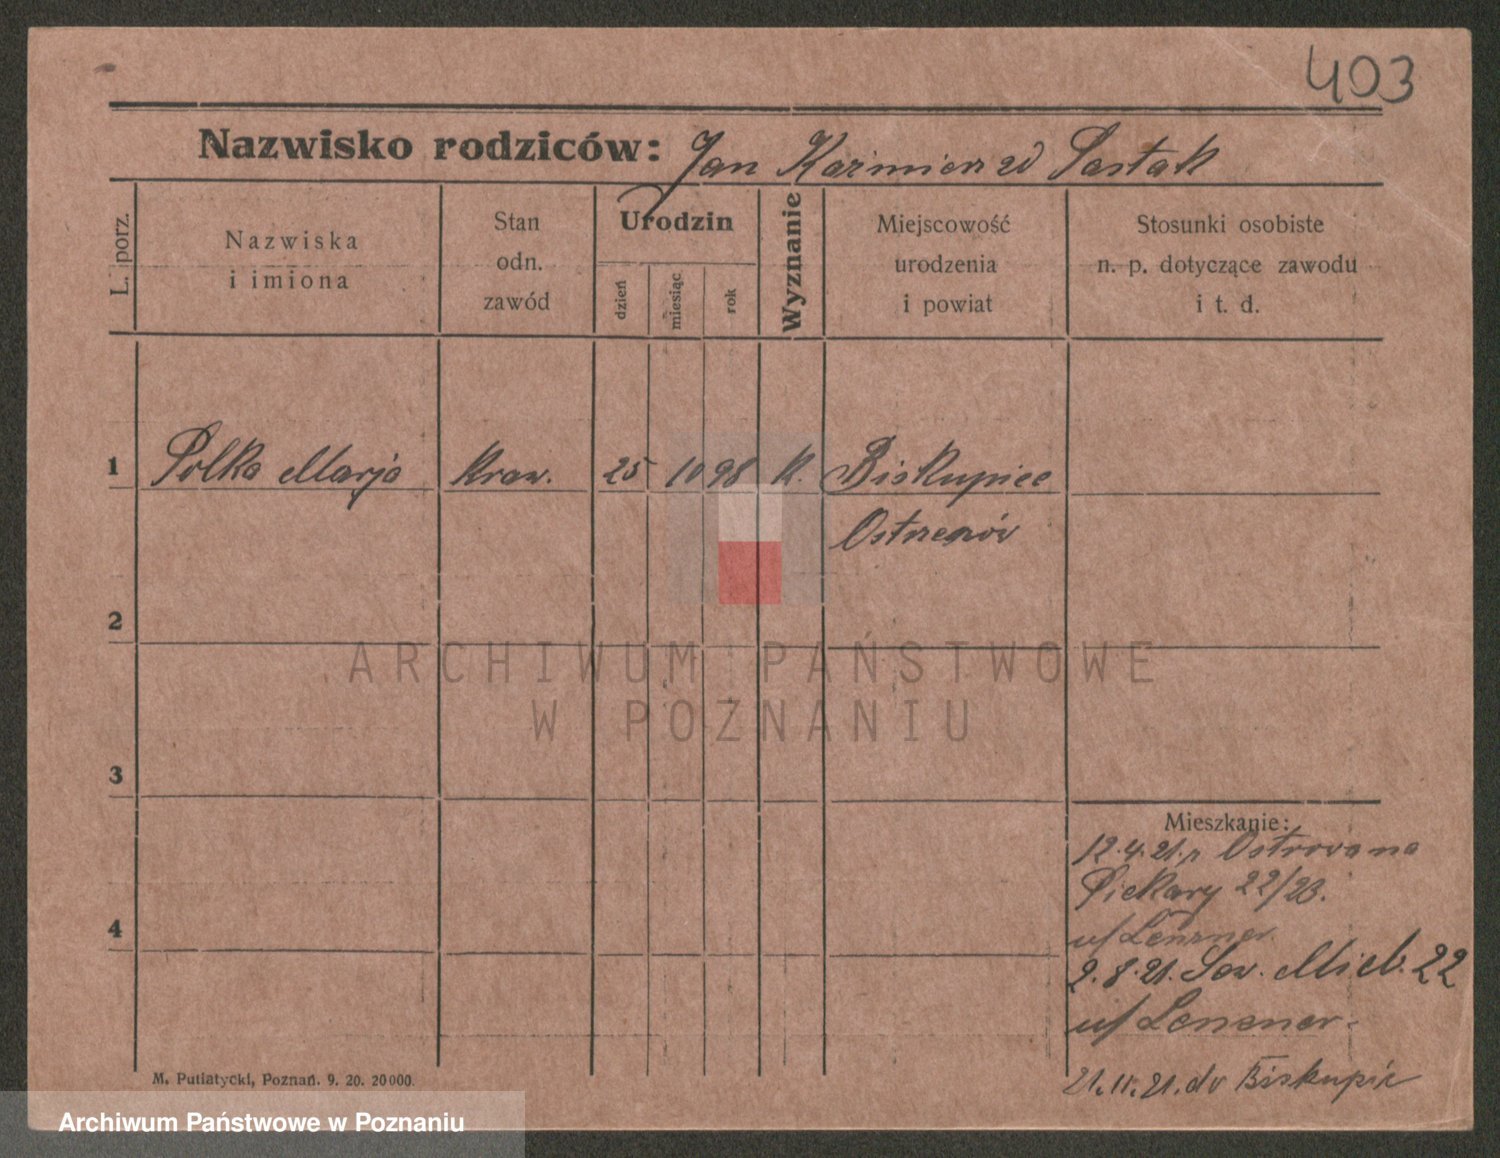 403
Nazwisko rodziców: Jan Kazimierz
L. porz.
Nazwiska
i imiona
Stan
odn.
zawód
Urodzin
dzień
miesiąc
rok
Wyznanie
Miejscowość
urodzenia
i powiat
Stosunki osobiste
n. p. dotyczące zawodu
i t. d.
1 Polka Marja kraw. 25 10 98 K. Biskupice
Ostrzeszów
2
3
4
ARCHIWUM PAŃSTWOWE
W POZNANIU
Mieszkanie:
12.4.21. z Ostrowa na
Piekary 22/23.
u/ Lenzner
2.8.21. Sew. Mielż. 22
u/ Lenzner.
21.11.21. do Biskupic
M. Putiatycki, Poznań. 9. 20. 20000.
Archiwum Państwowe w Poznaniu